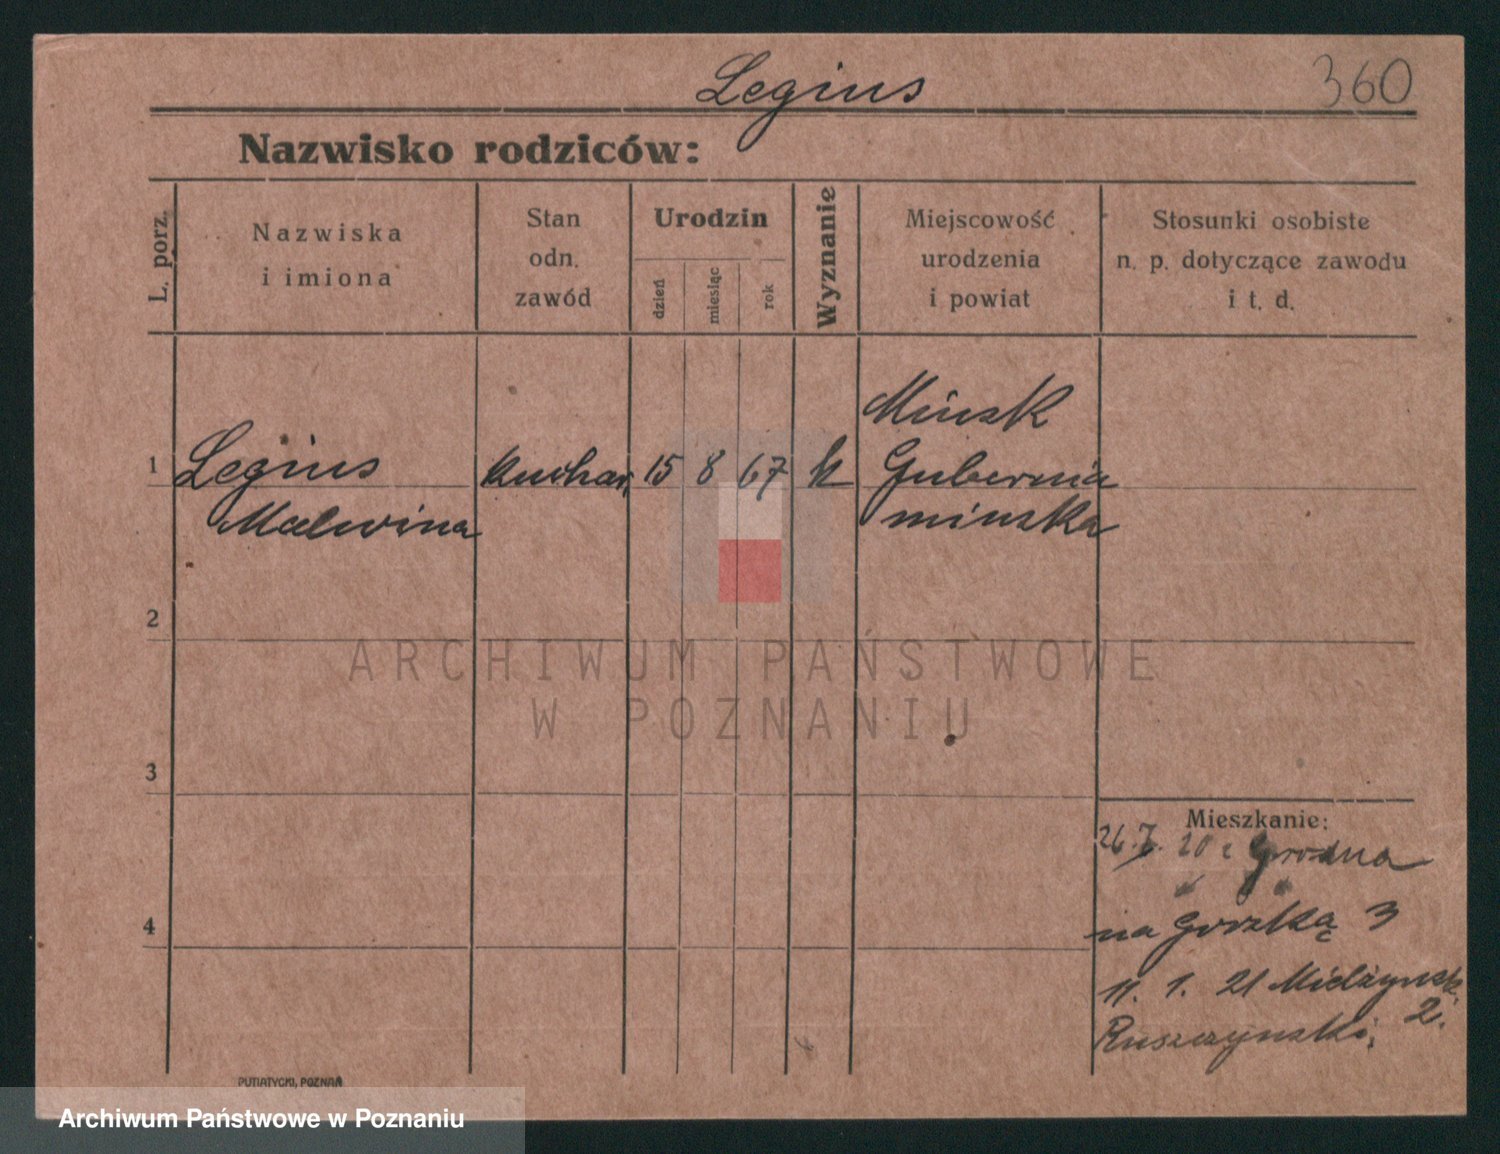 Legius
360
Nazwisko rodziców:
L. porz.
Nazwiska
i imiona
Stan
odn.
zawód
Urodzin
dzień
miesiąc
rok
Wyznanie
Miejscowość
urodzenia
i powiat
Stosunki osobiste
n. p. dotyczące zawodu
i t. d.
1
Legius
Malwina
kuchar.
15 8 67 k
Minsk
Gubernia
minska
2
ARCHIWUM PAŃSTWOWE
W POZNANIU
3
Mieszkanie:
26.7. 20 z Grodna
4
na Gorzką 3
11. 1. 21 Mielżynsk.
2.
Ruszczynski;
PUTIATYCKI, POZNAŃ
Archiwum Państwowe w Poznaniu